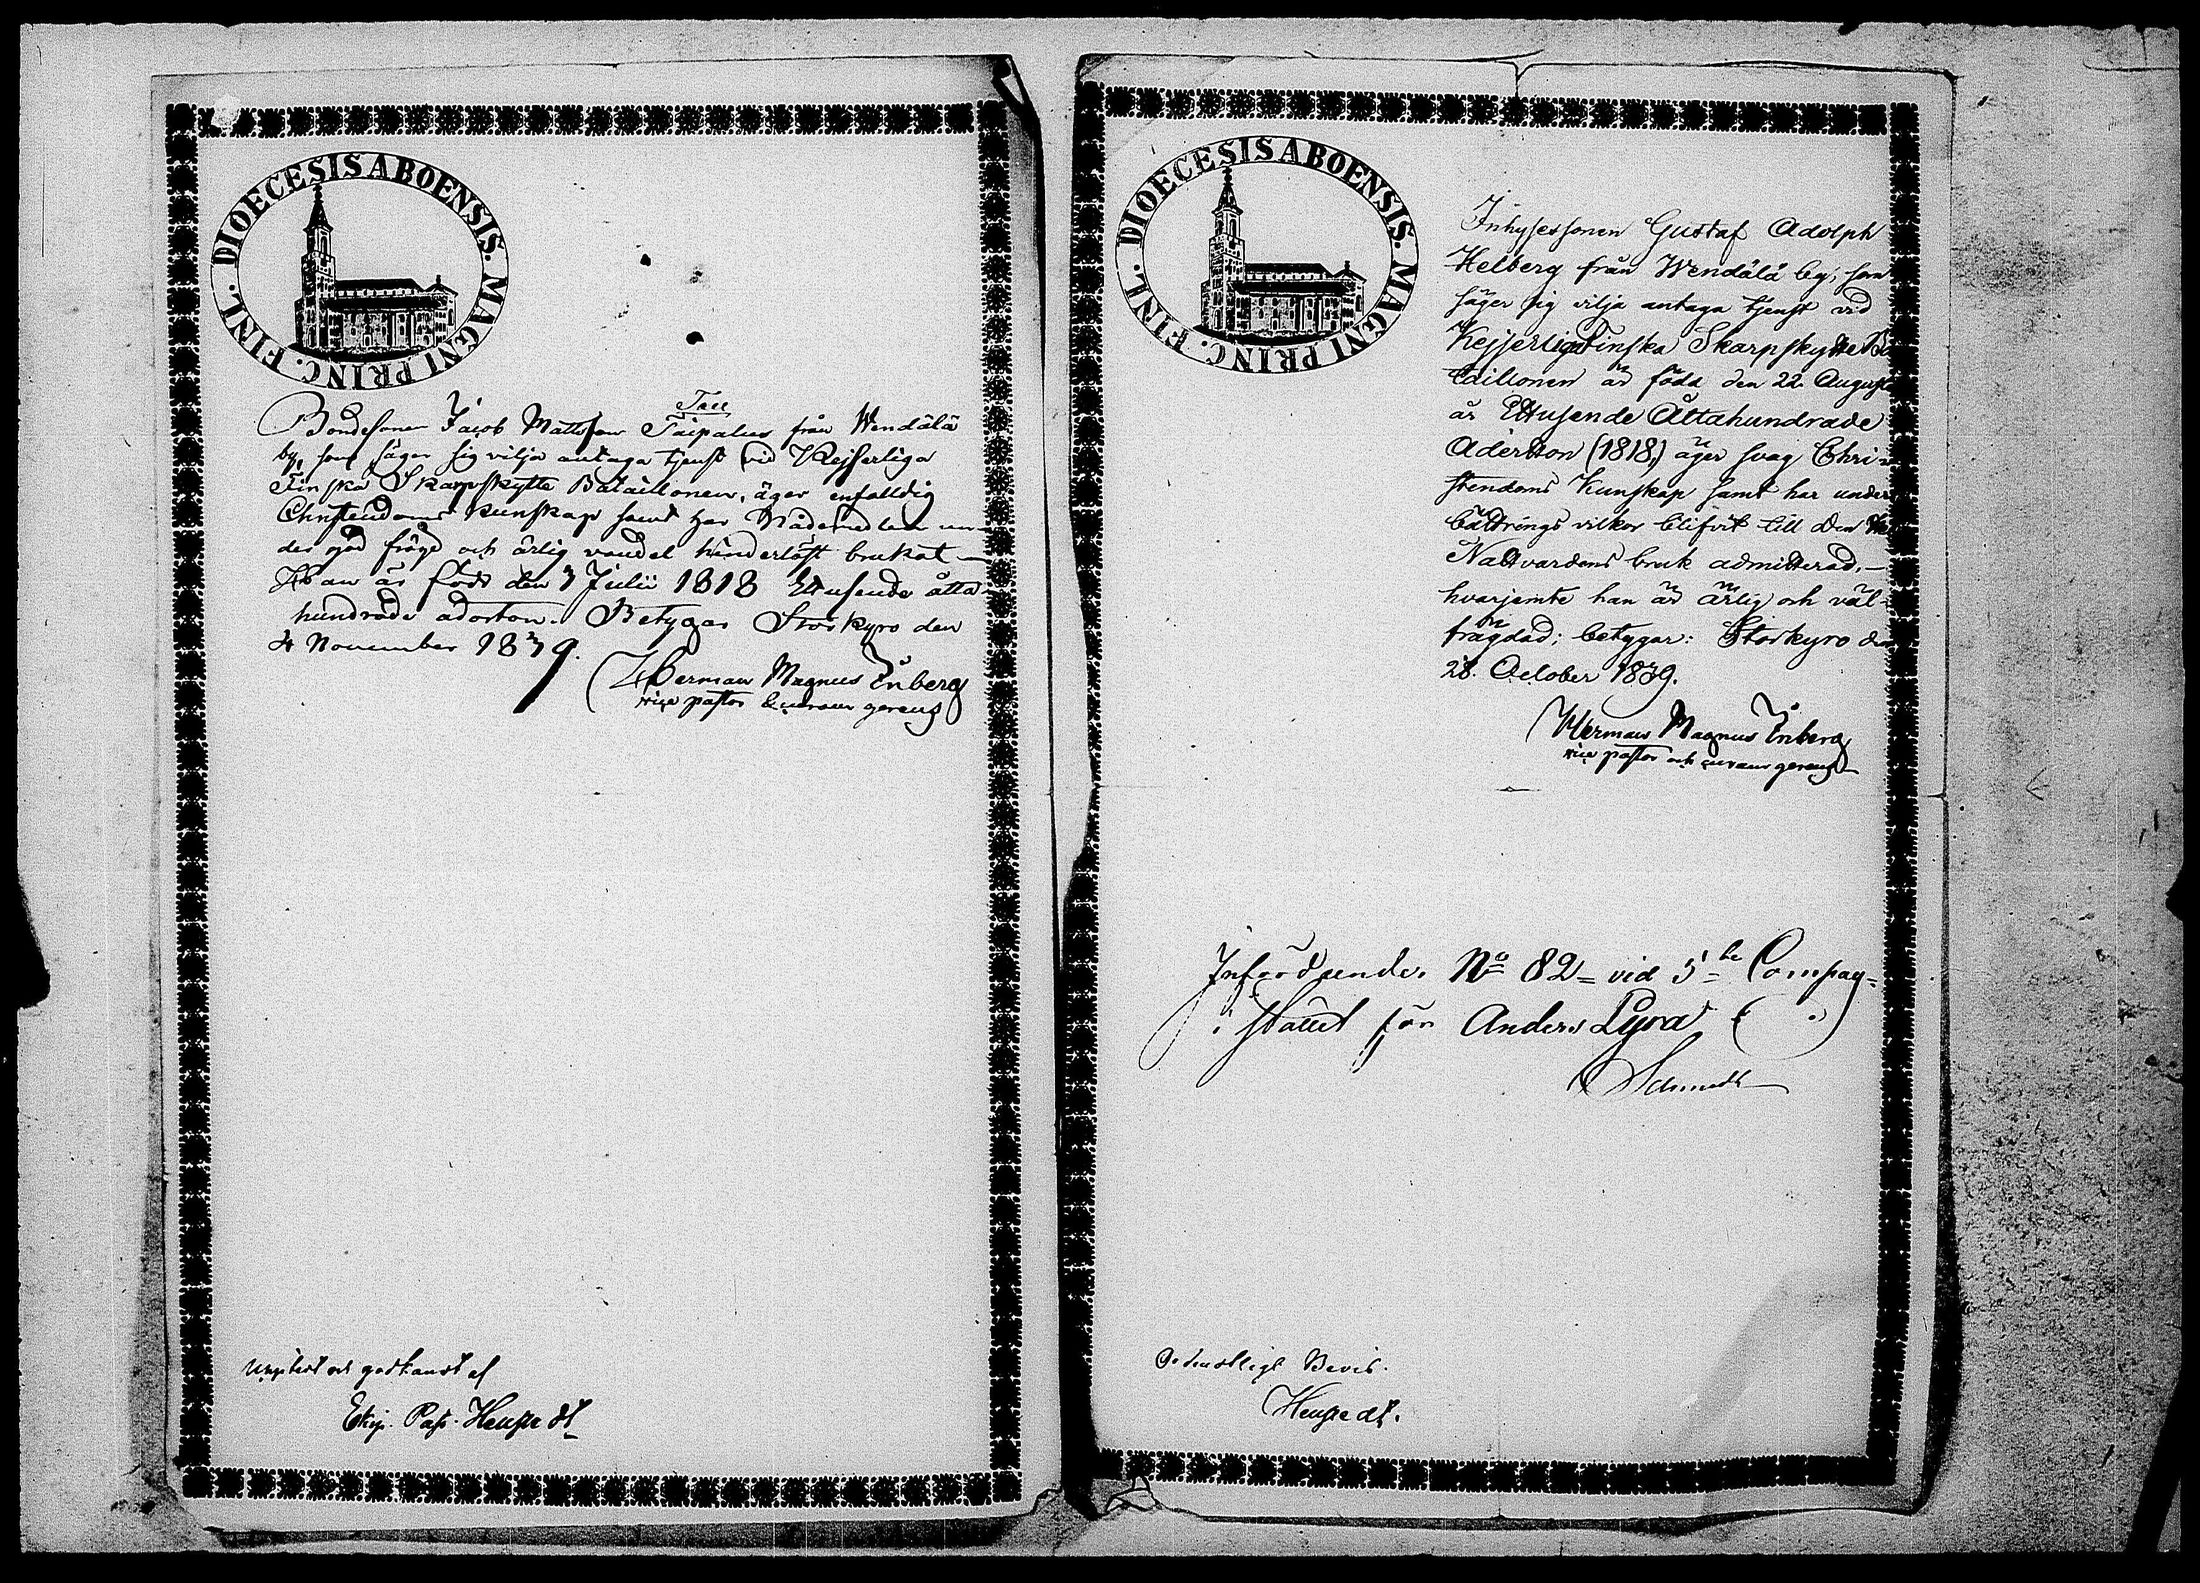 DIOECESIS ABOENSIS. MAGNI PRINC. FINL.
Tall
Bondesonen Jacob Mattsson Taipalus från Wendälä
by, som säger sig vilja antaga tjenst vid Kejserliga
Finska Skarpskytte Bataillonen, äger enfaldig
Christendoms kunskap samt har Nådemedlen un-
der god fräjd och ärlig vandel hinderlöst brukat —
Han är född den 7 Julii 1818 Ettusende åtta
hundrade aderton. Betygar Storkyro den
4 November 1839.
Herman Magnus Enberg
vice pastor & curam gerens
och godkändt af
Past. Heurstedt
DIOECESIS ABOENSIS. MAGNI PRINC. FINL.
Inhysessonen Gustaf Adolph
Helberg från Wendälä by, som
säger sig vilja antaga tjenst vid
Kejserliga Finska Skarpskytte Ba
taillonen är född den 22 Augusti
år Ettusende Åttahundrade
Aderton (1818,) äger svag Chri-
stendoms Kunskap samt har under
bättrings vilkor blifvit till den
Nattvardens bruk admitterad, —
hvarjemte han är ärlig och väl-
frägdad; betygar: Storkyro den
28. October 1839.
Herman Magnus Enberg
vice pastor och curam gerens
No 82 vid 5te Compag-
i stället för Anders Lyra
Schmidt
Bevis.
Heurstedt.